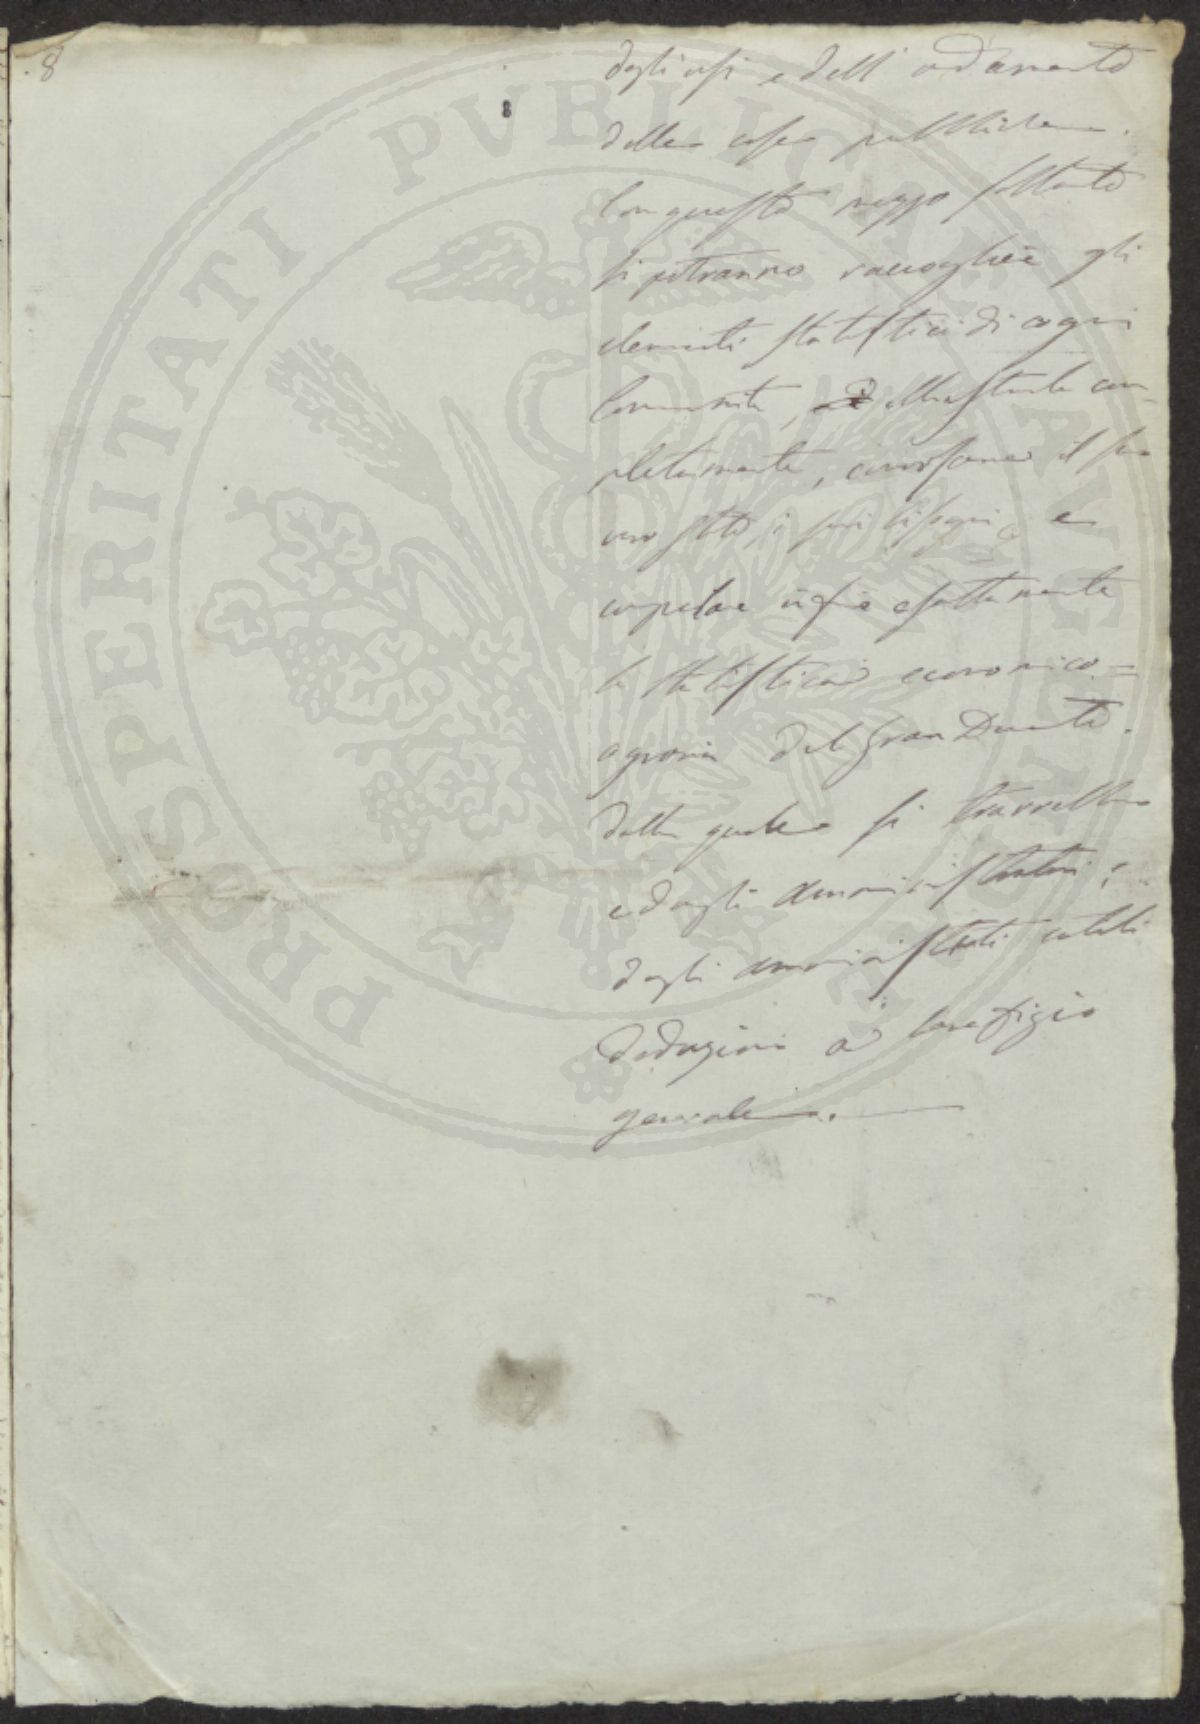 8
8
degli usi e dell' andamento
della cosa pubblica.
Con questo mezzo soltanto
si potranno raccogliere gli
elementi statistici di ogni
Comunità, illustrarle com-
pletamente, conoscere il suo
vero stato, i suoi bisogni e
compilare infine esattamente
la statistica economico-
agraria del Gran Ducato.
dalla quale si
e dagli amministratori, e
dagli amministrati utili
deduzioni a benefizio
generale.
PROSPERITATI PVBLICAE AVGENDAE